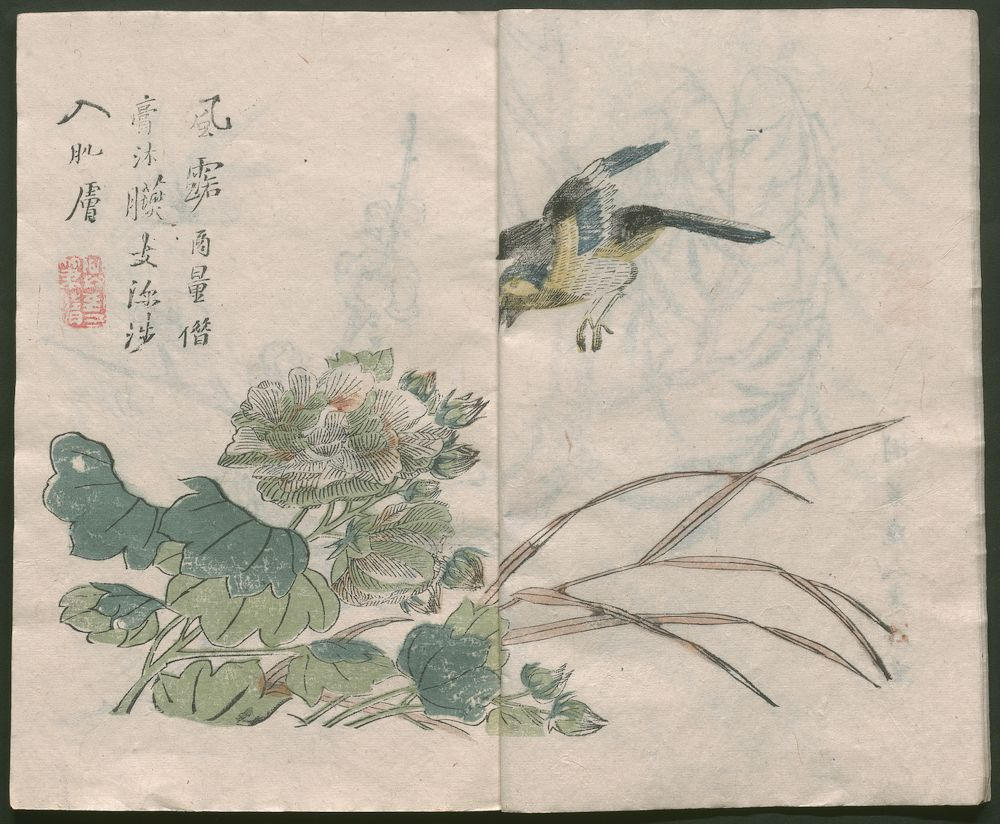 風露商量借
膏沐臙支深淺
入肌膚